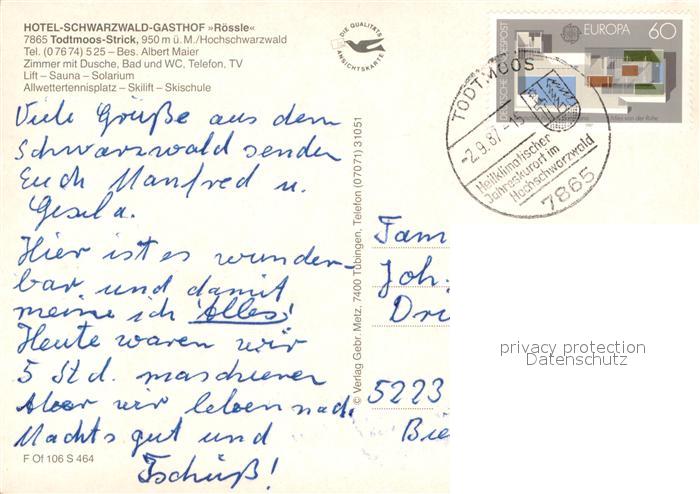 HOTEL-SCHWARZWALD-GASTHOF »Rössle«
7865 Todtmoos-Strick, 950 m ü. M./Hochschwarzwald
Tel. (0 76 74) 5 25 – Bes. Albert Maier
Zimmer mit Dusche, Bad und WC, Telefon, TV
Lift – Sauna – Solarium
Allwettertennisplatz – Skilift – Skischule
DIE QUALITÄTS
ANSICHTSKARTE
Viele Grüße aus dem
Schwarzwald senden
Euch Manfred u.
Gesela.
Hier ist es wunder-
bar und damit
meine ich 'Alles'
Heute waren wir
5 Std. maschieren
Aber wir leben noch.
Machts gut und
Tschüß!
F Of 106 S 464
© Verlag Gebr. Metz, 7400 Tübingen, Telefon (07071) 31051
DEUTSCHE BUNDESPOST
EUROPA 60
Mies van der Rohe
TODTMOOS
-2.9.87-15
Heilklimatischer
Jahreskurort im
Hochschwarzwald
7865
Fam
Joh.
Dri
5223
Bie
privacy protection
Datenschutz